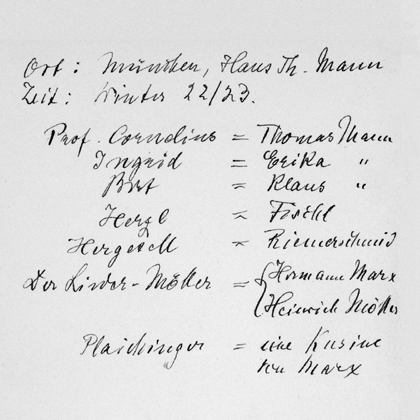 Ort: München, Haus Th. Mann
Zeit: Winter 22/23.
Prof. Cornelius = Thomas Mann
Ingrid = Erika "
Bert = Klaus "
Hergl = Fischl
Hergesell = Riemerschmid
Der Linder-Möller = { Hermann Marx
Heinrich Möller
Plaichinger = eine Kusine
von Marx